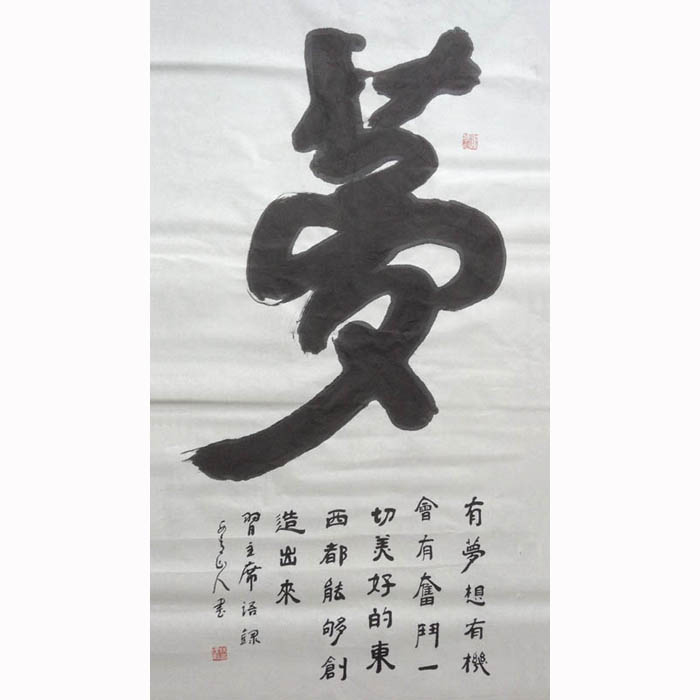 夢
有夢想有機
會有奮鬥一
切美好的東
西都能够創
造出來
習主席語錄
山人書